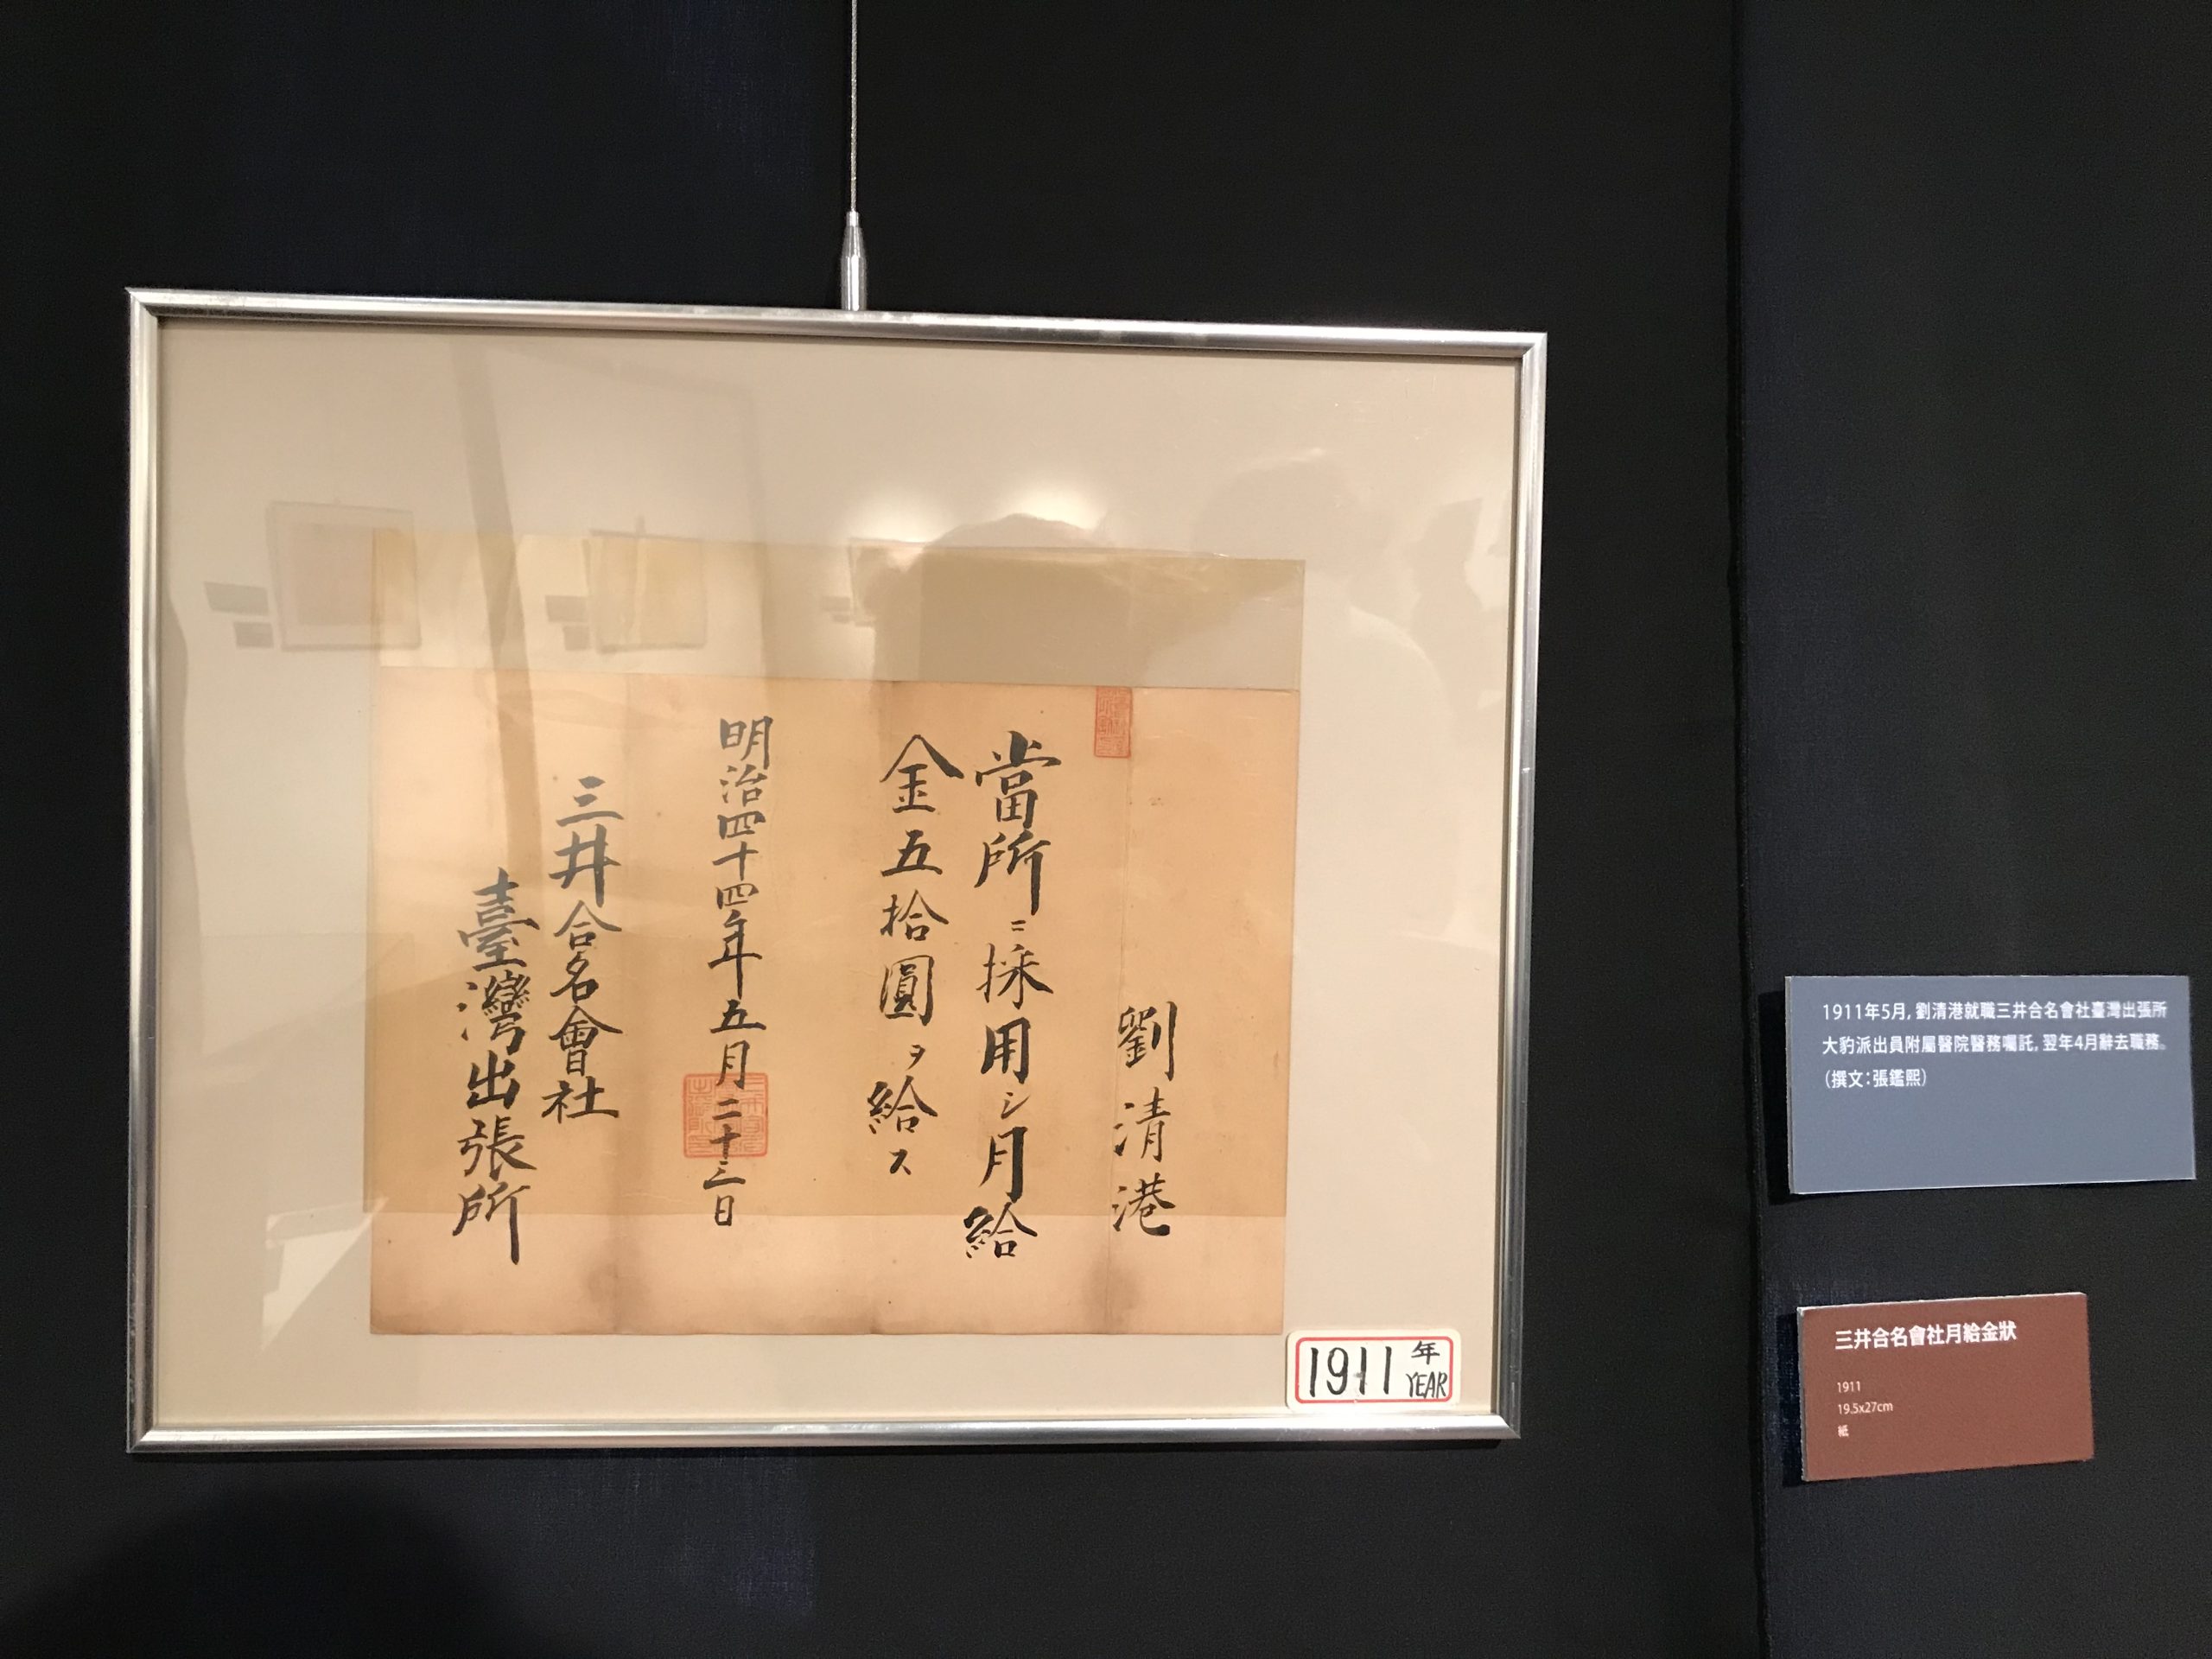 劉清港
當所ニ採用シ月給
金五拾圓ヲ給ス
明治四十四年五月二十三日
三井合名會社
臺灣出張所
1911年
YEAR
1911年5月,劉清港就職三井合名會社臺灣出張所
大豹派出員附屬醫院醫務囑託,翌年4月辭去職務。
(撰文:張鑑熙)
三井合名會社月給金狀
1911
19.5x27cm
紙